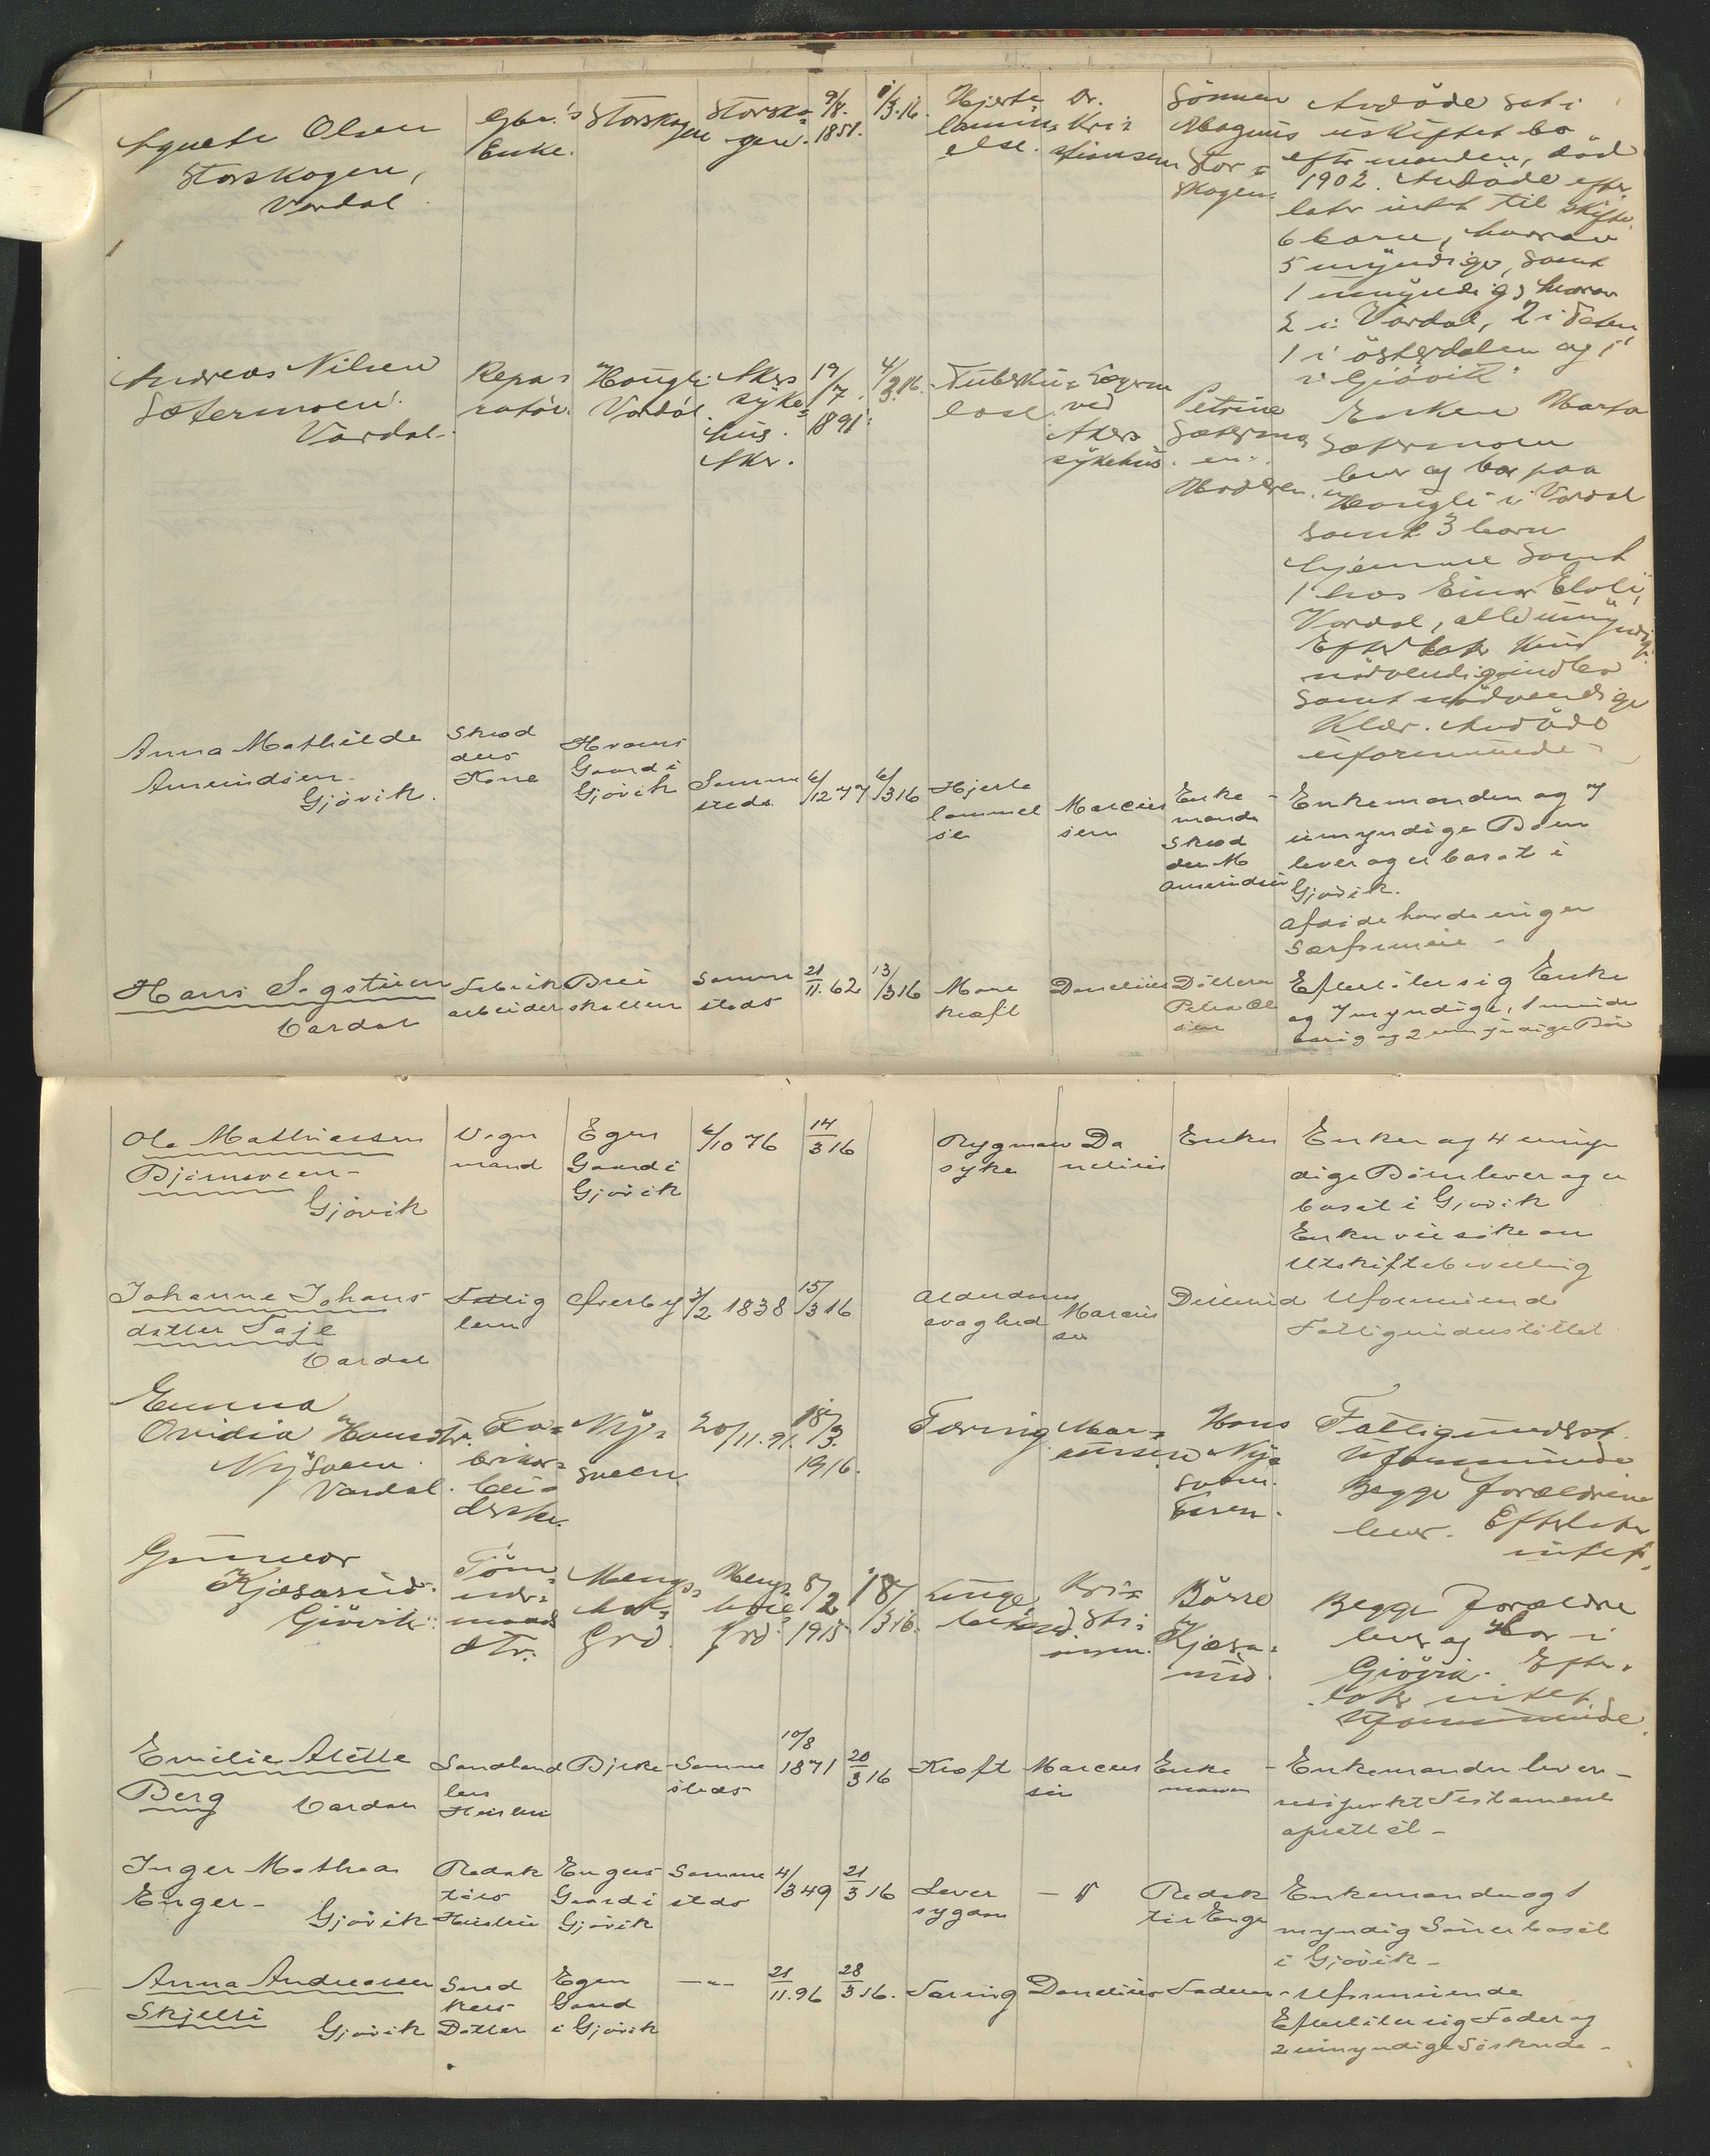 Agnete Olsen
Storskogen,
Vardal
Gbr.'s
Enke.
Storskogen
Storsko-
gen.
9/8.
1851.
1/3.16.
Hjerte
lammel
else.
Dr.
Kri=
stiansen
Sönnen
Magnus
Stor=
skogen.
Avdöde sat i
uskiftet bo
efter manden, död
1902. Avdöde efter
later intet til skifte.
6 barn, hvorav
5 myndige, samt
1 umyndig, hvorav
2 i Vardal, 2 i
1 i Österdalen og 1
i Gjövik.
Andreas Nilsen
Sætermoen.
Vardal.
Repa=
ratör.
Haugli
Vardal.
Akers
syke=
hus.
Aker.
19/7.
1891.
4/3.16.
Tuberku=
lose
Lægerne
ved
Akers
sykehus.
Petrine
Sætermo
en.
Moderen.
Enken Marta
Sætermoen
lever og bor paa
Haugli i Vardal
samt 3 barn
hjemme samt
1 hos Einar
Vardal, alle umyndige.
Efterlater kun
nödvendig indbo
samt nödvendige
Klær. Avdöde
uformuende
Anna Mathilde
Amundsen.
Gjövik.
Skræd
ders
Kone
Gaard i
Gjövik
Samme
steds
6/12 77
6/3 16
Hjerte
lammel
se
Marcus
sen
Enke
manden
Skræd
der M
Amundsen
Enkemanden og 7
umyndige Börn
lever og er bosat i
Gjövik.
Afdöde havde ingen
Særformue -
Hans Sogstuen
Vardal
Fabrik
arbeider
Brei
skallen
Samme
steds
21/11. 62
13/3 16
Mave
kræft
Danelius
Datteren
Petra Ol
sen
Efterlater sig Enke
og 7 myndige, 1 minde
aarig og 2 umyndige Börn
Ole Mathiassen
Björnsveen -
Gjövik
Vogn
mand
Egen
Gaard i
Gjövik
6/10 76
14/3 16
Rygmarv
syke
Da
nelius
Enken
Enken og 4 umyn
dige Börn lever og er
bosat i Gjövik
Enken vil söke om
Utskiftebevilling
Johanne Johans
datter Taje
Vardal
Fattig
lem
Överby
3/2 1838
15/3 16
Alderdoms
svaghed
Marcus
sen
Uformuende
Fattigunderstöttet
Emma
Ovidia Hansdtr.
Nysveen.
Vardal.
Fa=
brikar=
bei=
derske.
Ny=
sveen.
20/11. 91.
18/3.
1916.
Tæring
Mar=
cussen
Hans
Ny=
sveen.
Faren.
Fattigunderst.
Uformuende
Begge forældrene
lever. Efterlater
intet.
Gunvor
Kjæsarud.
Gjövik.
Töm
mer=
mands
dtr.
Mengs=
hol=
grd.
Mengs
hol
grd.
8/2
1915
18/3 16.
Lunge
betend.
Kri=
sti=
ansen.
Börre
Kjæsa=
rud.
Begge forældre
lever og bor i
Gjövik. Efter=
later intet.
Uformuende.
Emilie Alette
Berg
Vardal
Landhand
lers
Hustru
Bjerke
Samme
steds
10/8
1871
20/3 16
Kræft
Marcus
sen
Enke
manden
- Enkemanden lever -
Testament
oprettet -
Inger Mathea
Enger -
Gjövik
Redak
törs
Hustru
Engers
Gaard i
Gjövik
Samme
steds
4/3 49
21/3 16
Lever
sygdom
- " -
Redak
tör Enger
Enkemanden og 1
myndig Sön er bosat
i Gjövik -
Anna Andreassen
Skjelli
Gjövik
Sned
kers
Datter
Egen
Gaard
i Gjövik
- " -
21/11. 96
28/3 16.
Tæring
Danelius
Faderen
- Uformuende
Efterlater sig Fader og
2 umyndige Söskende -